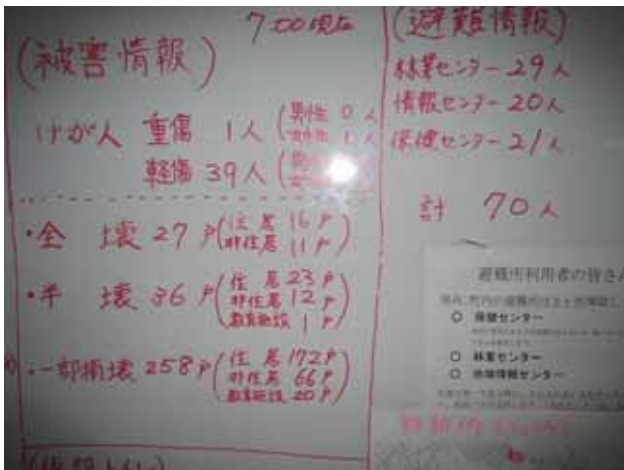 7:00現在
(被害情報)
けが人 重傷 1人(男性 0人
女性 1人
軽傷 39人(
・全 壊 27戸(住居 16戸
非住居 11戸)
・半 壊 36戸(住居 23戸
非住居 12戸
教育施設 1戸)
・一部損壊 258戸(住居 172戸
非住居 66戸
教育施設 20戸)
(避難情報)
林業センター 29人
情報センター 20人
保健センター 21人
計 70人
避難所利用者の皆さん
○ 保健センター
○ 林業センター
○ 地域情報センター